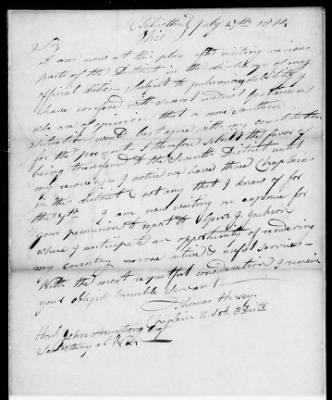 July 27th 1814
Sir
I am now at this place after visiting various
parts of the District in the discharge of my
official duties subject to pulmonary debility I
have conferred with several medical Gentlemen
who are of opinion that a more southern
situation would best agree with my constitution
for the present. I therefore solicit the favor of
being transferred to the Seventh District until
my recovery. I notice we have three Chaplains
in the District & not any that I know of for
the 7th I am now waiting on expense for
your permission to report to Genl Jackson
where I anticipate an opportunity of rendering
my country more services
With the most respectful consideration I remain
your obliged humble servant
Thomas Hersey
Chaplain U.S.A.
Honl John Armstrong Esq
Secretary of War